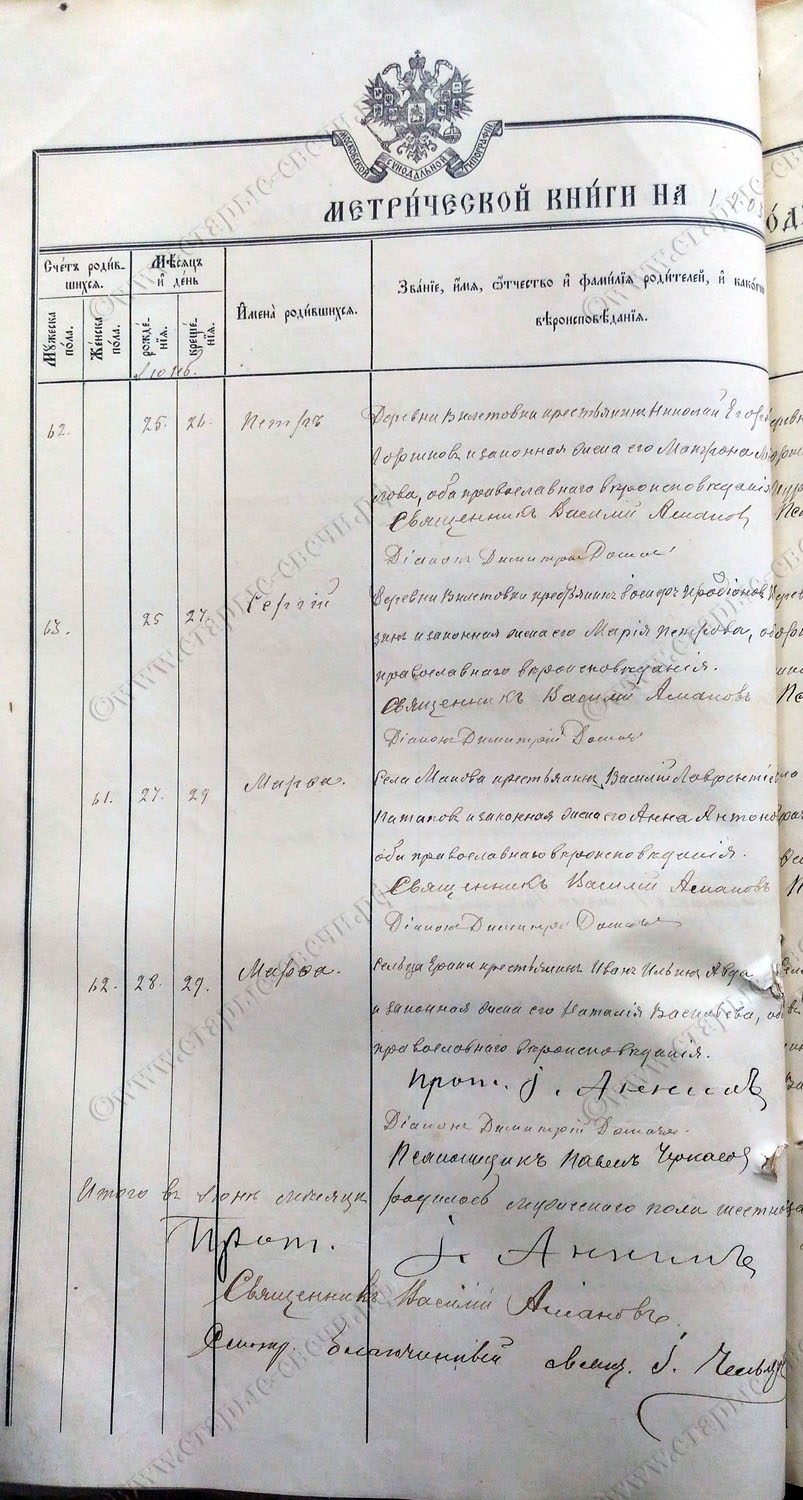 МОСКОВСКОЙ СУНОДАЛЬНОЙ ТИПОГРАФІИ
МЕТРИ́ЧЕСКОЙ КНИ́ГИ НА 190
Счетъ роди́в-
шихся.
Мѣсяцъ
и҆ де́нь
Мꙋ́жеска
по́ла.
Же́нска
по́ла.
рожде́-
нїѧ.
креще́-
нїѧ.
И҆мена̀ роди́вшихся.
Зва́нїе, и҆́мѧ, ѻ҆́тчество и҆ фами́лїѧ роди́телей, и҆ како́гѡ
вѣроисповѣ́данїѧ.
Іюнь.
62. 25. 26. Петръ
Деревни Вилетовки крестьянинъ Николай Егор
Горшков и законная жена его Матрона
лова, оба православнаго вѣроисповѣданія
Священникъ Василій Асманов
Діаконъ Димитрій
63. 25 27. Сергій
Деревни Вилетовки крестьянин Іосифъ Иродіонов
зин и законная жена его Марія Петрова, об
православнаго вѣроисповѣданія.
Священникъ Василій Асмановъ
Діаконъ Димитрій
61. 27. 29 Марѳа.
Села Макова крестьянинъ Василій Лаврентіе
Патапов и законная жена его Анна Антоно
оба православнаго вѣроисповѣданія.
Священникъ Василій Асмановъ
Діаконъ Димитрій
62. 28. 29. Марѳа.
Сельца крестьянинъ Иванъ Ильинъ
и законная жена его Наталія Васильева, об
православнаго вѣроисповѣданія.
Прот. І.
Діаконъ Димитрій
Псаломщикъ Павелъ Черкасов
Итого въ Іюнѣ мѣсяцѣ родилось мужескаго пола шестн
Прот. І.
Священникъ Василій Асмановъ.
благочинный свящ. І.
©www.старыс-свсчи.рф